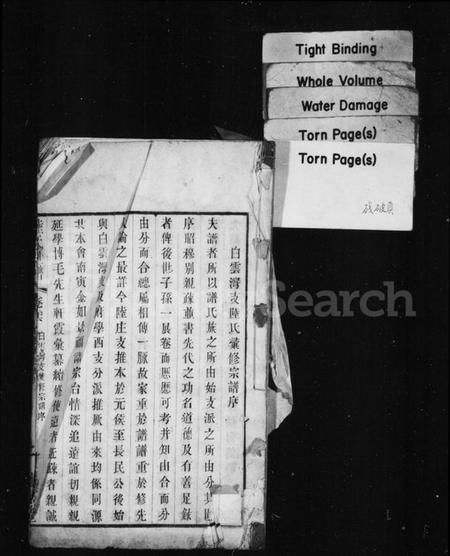 Tight Binding
Whole Volume
Water Damage
Torn Page(s)
Torn Page(s)
残破頁
白雲灣支陸氏彙修宗譜序
夫譜者所以譜氏族之所由始支派之所由分其
序昭穆別親疎書先代之功名道德及有善足錄
者俾後世子孫一展卷而歷歷可考并知由合而分
由分而合總屬相傳一脈故家重於譜譜重於修先
人論之最詳今陸庄支推本於元侯至長民公後始
與白雲灣支及府學西支分派推厥由來均係同源
其本會南寅金如景宗台情深追遠誼切親親
延學博毛先生軒霞彙纂統修使遠者近疎者親誠
白雲灣支彙修宗譜序
Search